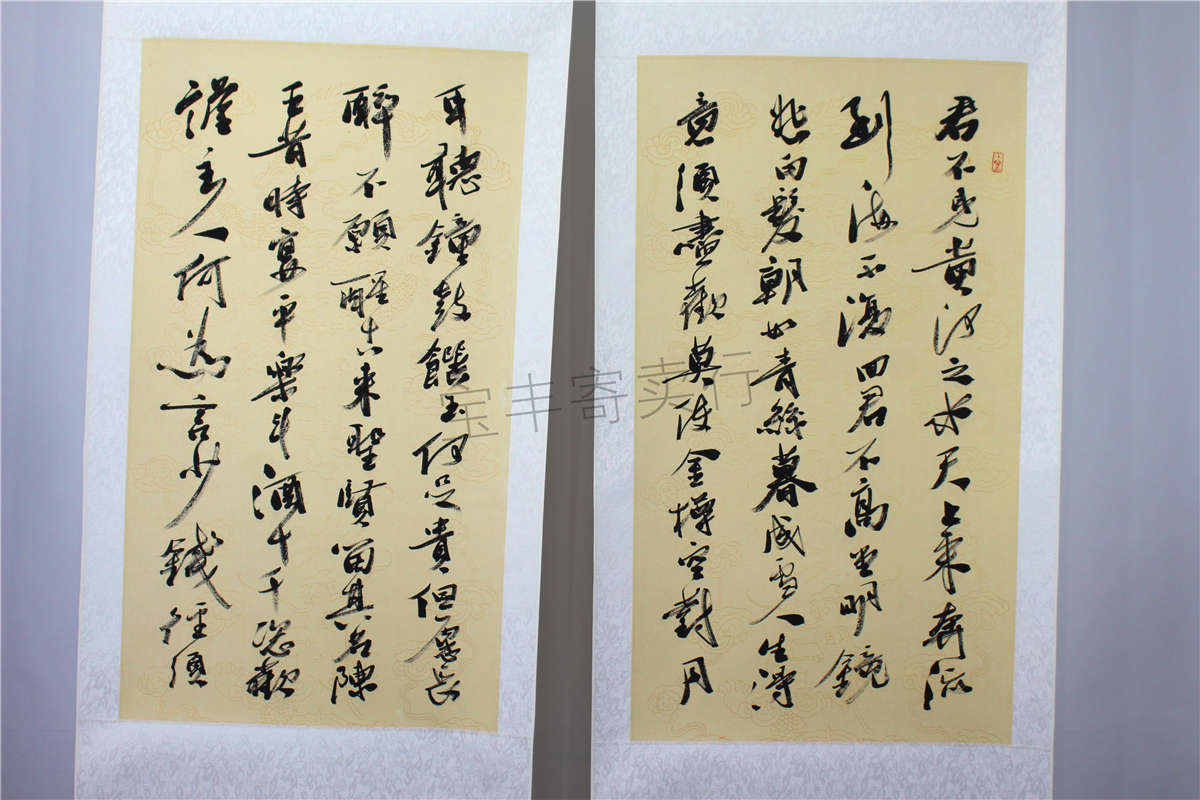 君不見黄河之水天上来奔流
到海不復回君不高堂明鏡
悲白髮朝如青絲暮成雪人生得
意須盡歡莫使金樽空對月
耳聽鐘鼓饌玉何足貴但願長
醉不願醒古来聖賢留其名陳
王昔時宴平樂斗酒十千恣歡
謔主人何為言少錢徑須
宝丰寄卖行